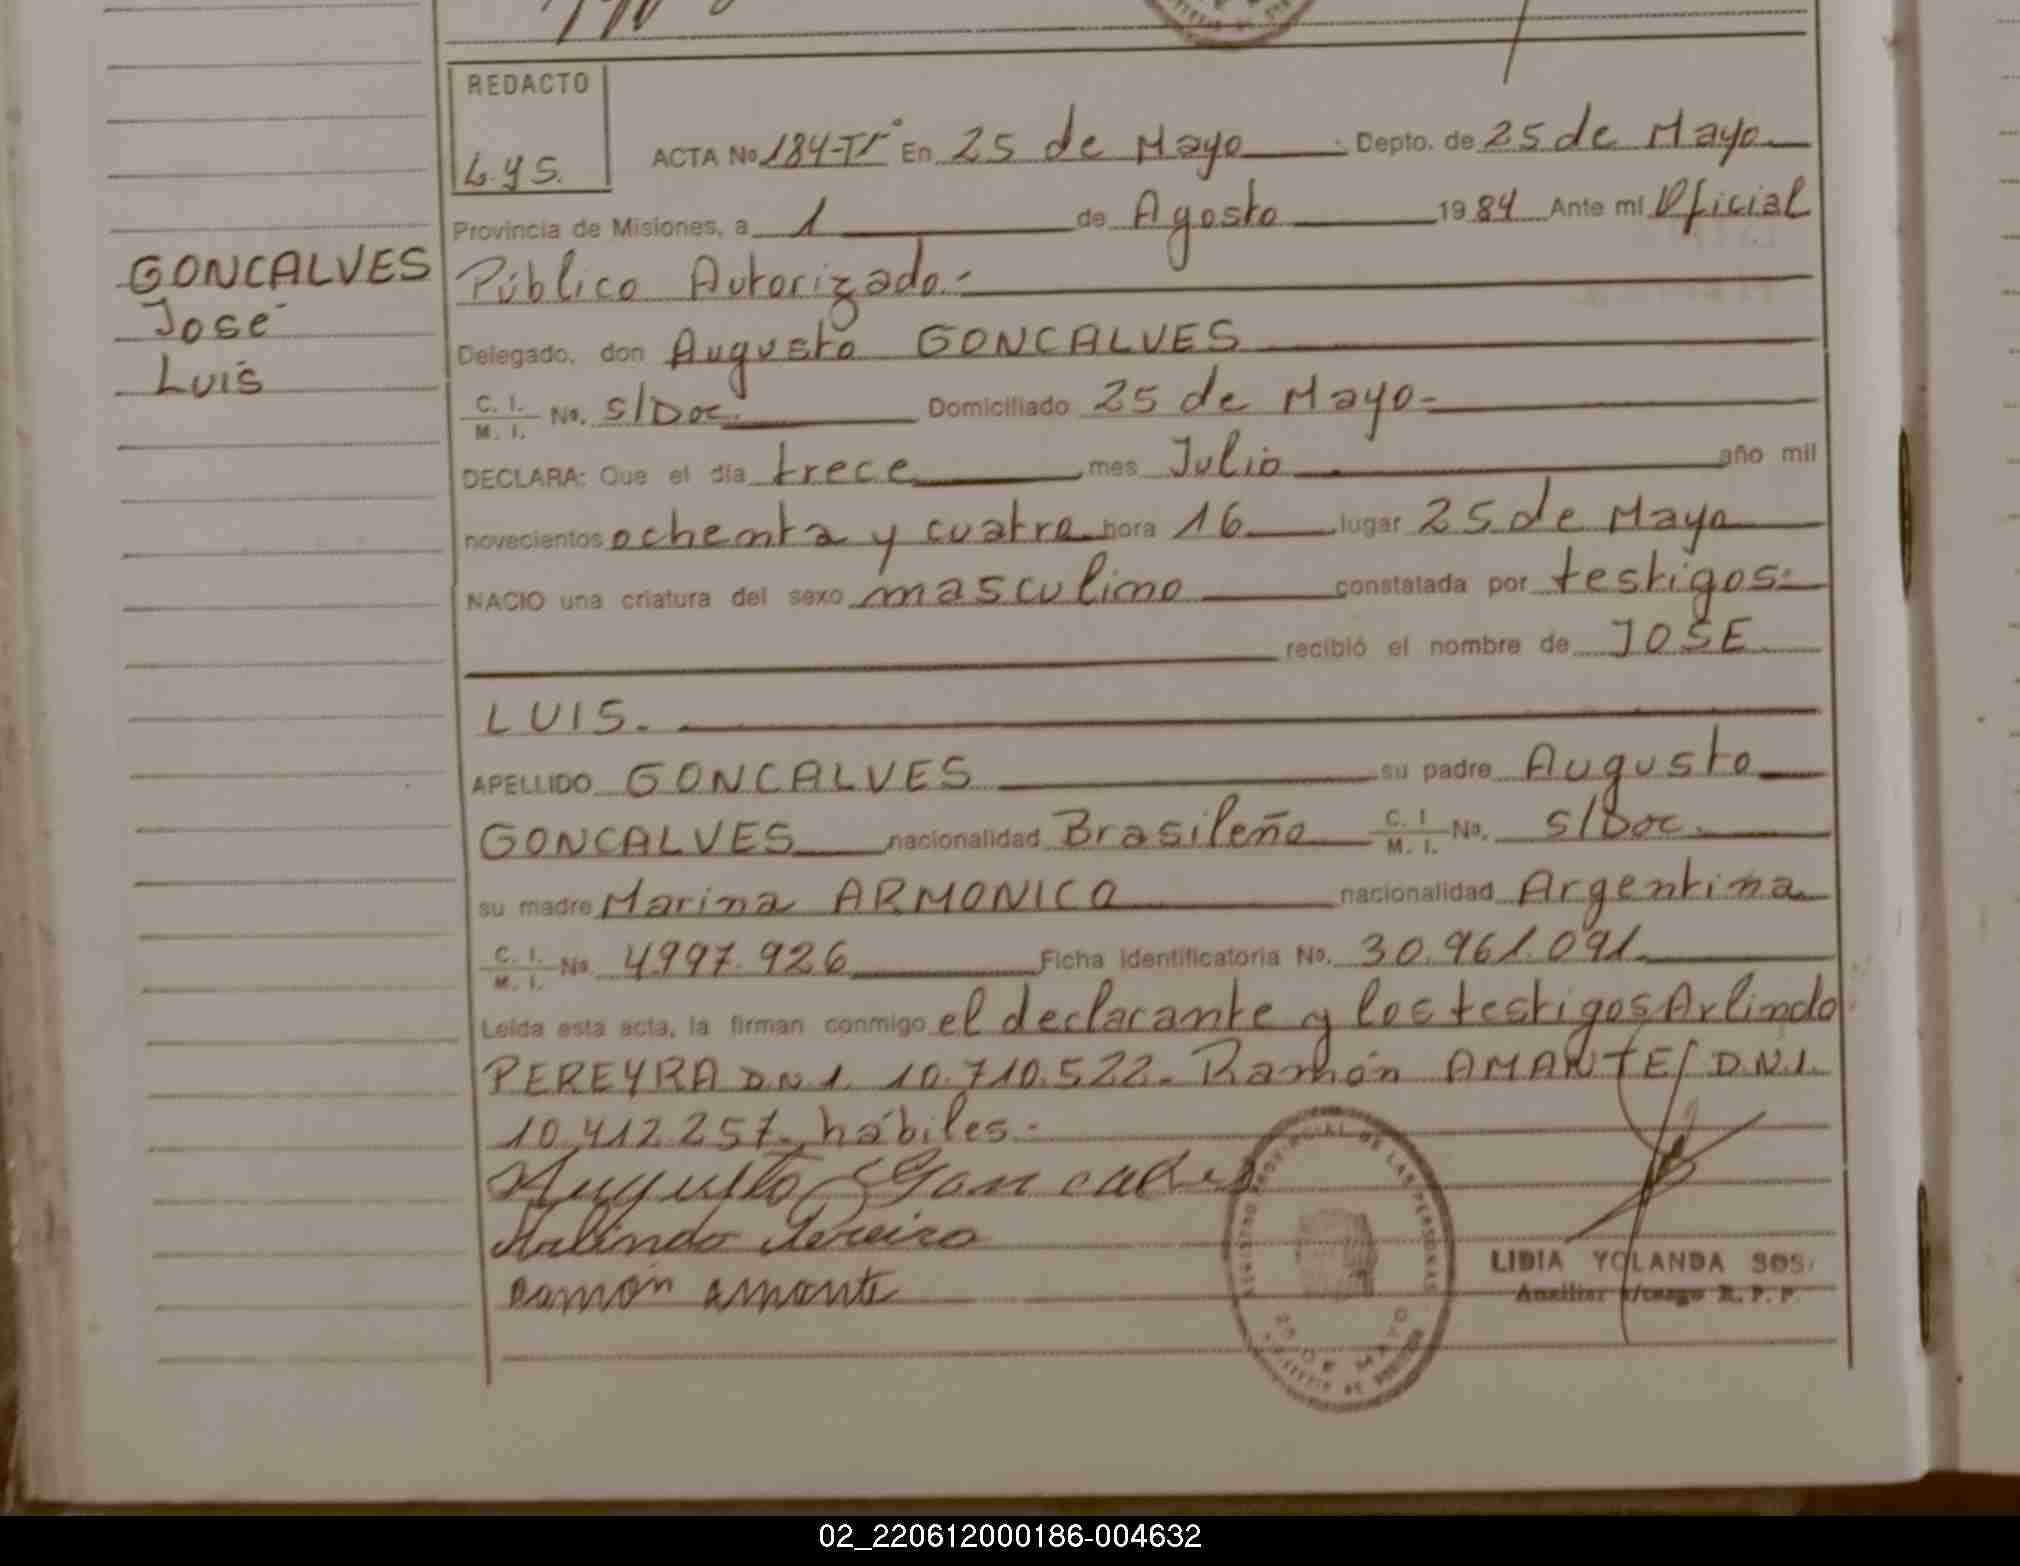 REDACTO
L.y S.
ACTA No 184-Tº I En 25 de Mayo Depto. de 25 de Mayo
Provincia de Misiones, a 1 de Agosto 1984 Ante mí Oficial
GONCALVES
José
Luis
Público Autorizado.-
Delegado, don Augusto GONCALVES
C. I. / M. I. No. S/Doc. Domiciliado 25 de Mayo-
DECLARA: Que el día trece mes Julio año mil
novecientos ochenta y cuatro hora 16 lugar 25 de Mayo
NACIO una criatura del sexo masculino constatada por testigos.-
recibió el nombre de JOSE
LUIS.
APELLIDO GONCALVES su padre Augusto
GONCALVES nacionalidad Brasileño C. I / M. I. No. S/Doc.
su madre Marina ARMONICO nacionalidad Argentina
C. I. / M. I. No 4997.926 Ficha identificatoria No. 30.961.091.
Leída esta acta, la firman conmigo el declarante y los testigos Arlindo
PEREYRA D.N.I. 10.710.522. Ramón AMANTE/ D.N.I.
10.412.257. hábiles.-
Augusto Goncalves
Arlindo Pereira
Ramón Amante
REGISTRO PROVINCIAL DE LAS PERSONAS
25 DE MAYO
LIDIA YOLANDA SOS
Auxiliar a/cargo R. P. P.
02_220612000186-004632